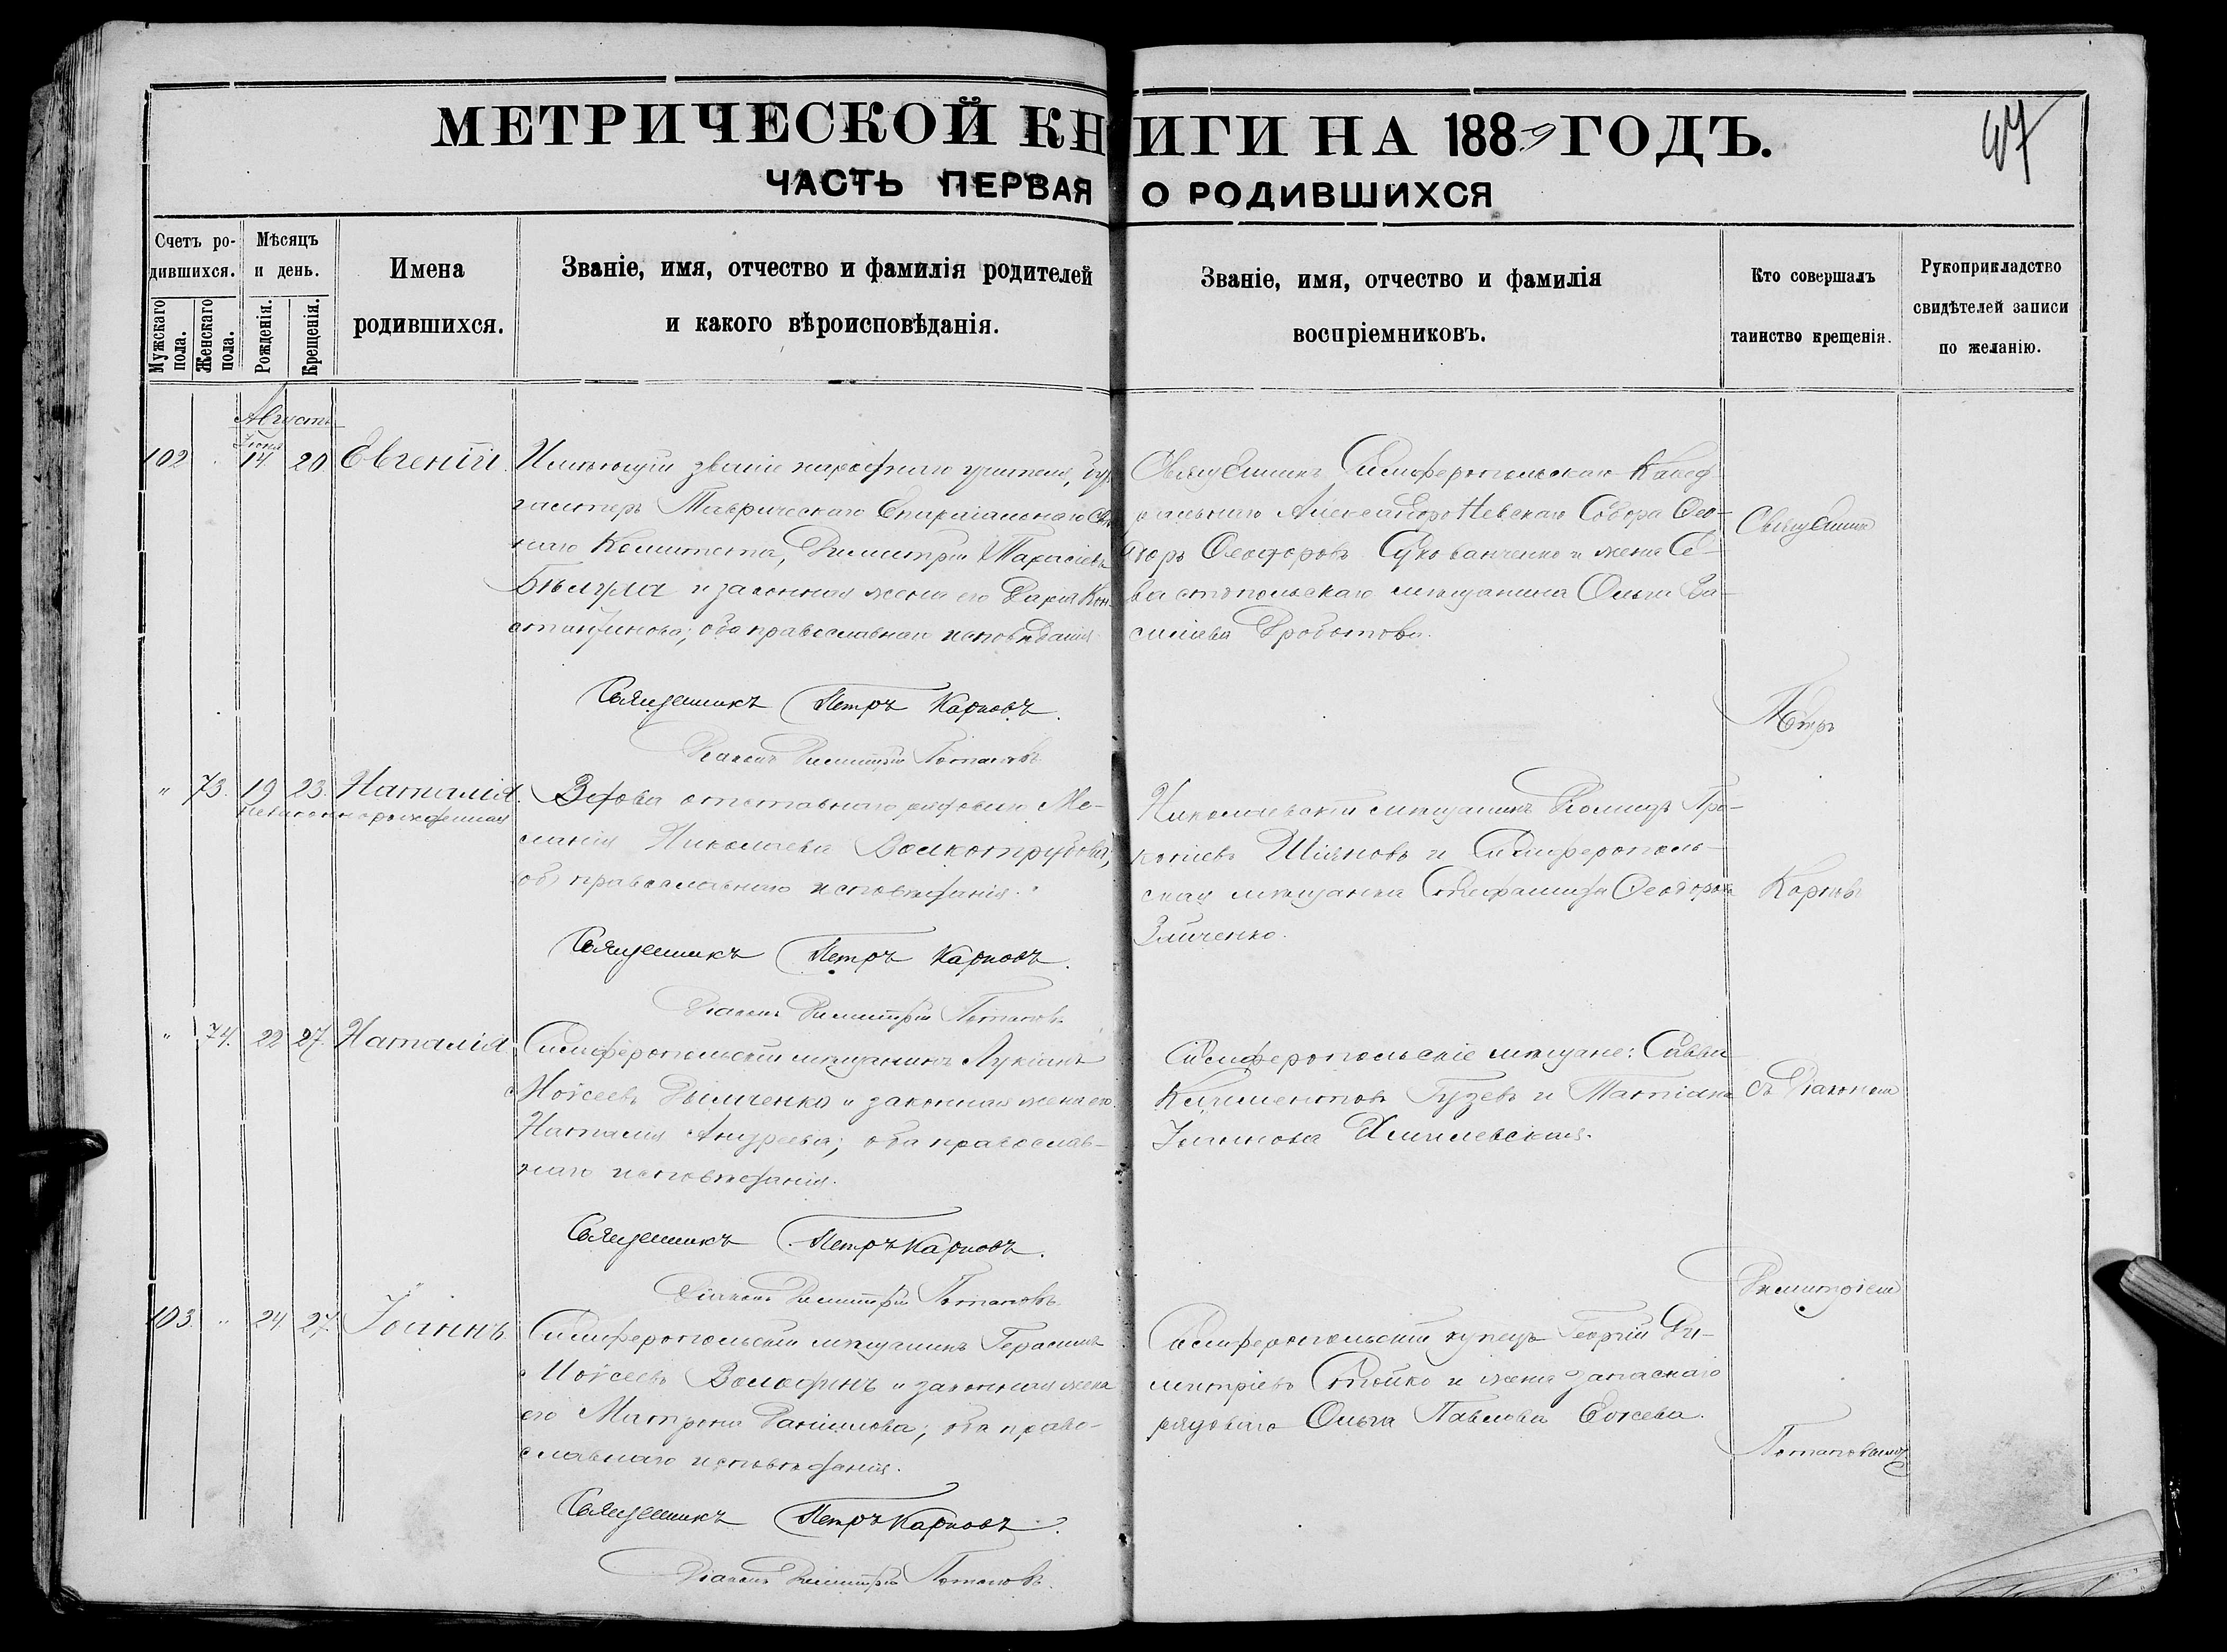 МЕТРИЧЕСКОЙ КНИГИ НА 1889 ГОДЪ.
67
ЧАСТЬ ПЕРВАЯ О РОДИВШИХСЯ
Счетъ родившихся.
Мужскаго пола.
Женскаго пола.
Мѣсяцъ и день.
Рожденія.
Крещенія.
Имена
родившихся.
Званіе, имя, отчество и фамилія родителей
и какого вѣроисповѣданія.
Званіе, имя, отчество и фамилія
воспріемниковъ.
Кто совершалъ
таинство крещенія.
Рукоприкладство
свидѣтелей записи
по желанію.
Августъ
102 14 20 Евгеній
Имѣющій званіе народнаго учителя, бух
галтеръ Таврическаго Епархіальнаго
наго Комитета, Димитрій Тарасіевъ
Бѣлула и законная жена его Дарія Кон-
стантинова; оба православнаго исповѣданія
Священникъ Петръ Карповъ.
Діаконъ Димитрій Потаповъ.
Священникъ Симферопольскаго Каѳед
ральнаго Александро Невскаго Собора Ѳео-
доръ Ѳеодоровъ и жена Се-
вастопольскаго мѣщанина Ольга Ва-
силіева
" 73. 19 23. Наталія.
Незаконнорожденная
Вдова отставнаго рядоваго Ме-
ланія Николаева Волкотрубова,
православнаго исповѣданія.
Священникъ Петръ Карповъ.
Діаконъ Димитрій Потаповъ.
Николаевскій мѣщанинъ Про-
копіевъ Шіяновъ и Симферополь-
ская мѣщанка Стефанида Ѳеодорова
" 74. 22 27. Наталія
Симферопольскій мѣщанинъ Лукіанъ
Моѵсеевъ Дымченко и законная жена его
Наталія Андреева; оба православ-
наго исповѣданія.
Священникъ Петръ Карповъ.
Діаконъ Димитрій Потаповъ.
Симферопольскіе мѣщане: Савва
Климентовъ Гузевъ и Татіана
103. " 24 27. Іоаннъ
Симферопольскій мѣщанинъ Герасимъ
Моѵсеевъ Володинъ и законная жена
его Матрона Даніилова; оба право-
славнаго исповѣданія.
Священникъ Петръ Карповъ.
Діаконъ Димитрій Потаповъ.
Симферопольскій купецъ Георгій Ди-
митріевъ Стойко и жена запаснаго
рядоваго Ольга Павлова
Священникъ
Петръ
Карповъ
съ Діакономъ
Димитріемъ
Потаповымъ